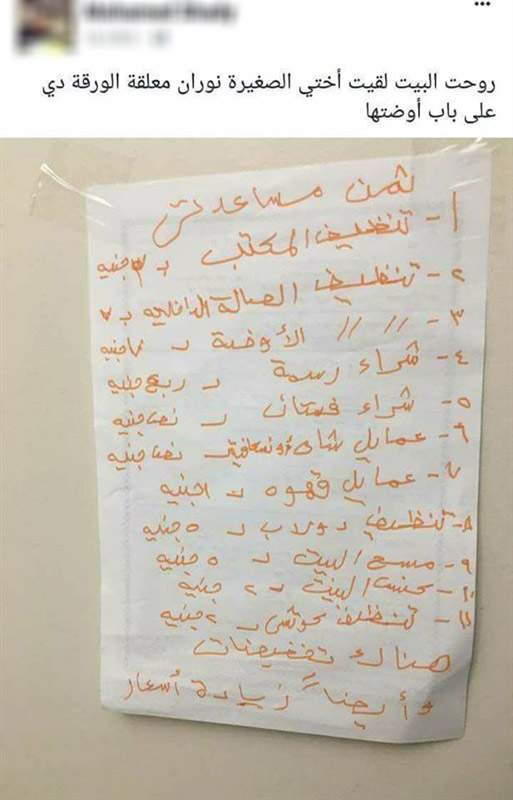 روحت البيت لقيت أختي الصغيرة نوران معلقة الورقة دي
على باب أوضتها
ثمن مساعدتي
١- تنظيف المكتب بـ جنيه
٢- تنظيف الصالة الداخليه بـ ٧
٣- // // الأوضة بـ جنيه
٤- شراء رسمة بـ ربع جنيه
٥- شراء فستان بـ نص جنيه
٦- عمايل شاى أو نسكافيه بـ نص جنيه
٧- عمايل قهوه بـ ١ جنيه
٨- تنظيف دولاب بـ ٥ جنيه
٩- مسح البيت بـ ٥ جنيه
١٠- كنس البيت بـ ٢ جنيه
١١- تنظيف بـ ٢ جنيه
هناك تخفيضات
و أيضاً زيادة أسعار